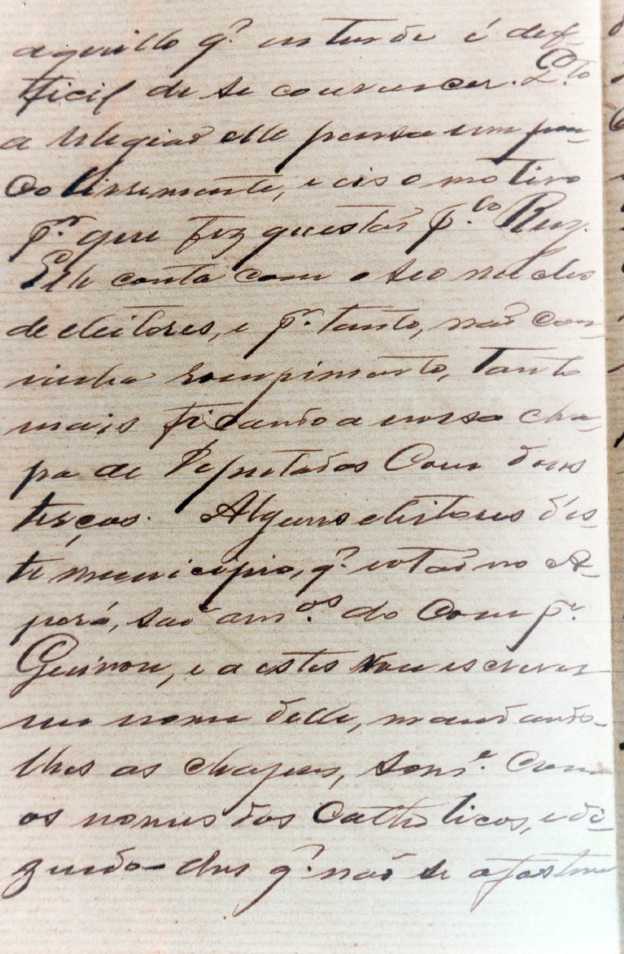 aquillo q.' entende é dif-
ficil de se convencer. Q.to
a religião elle pensa um pou-
co livremente, e eis o motivo
p.r que fez questão p.lo Ruy.
Elle conta com o seo nucleo
de eleitores, e p.r tanto, não con-
vinha rompimento, tanto
mais ficando a nossa cha-
pa de Deputados com dous
terços. Alguns eleitores d'es-
te municipio, q.' votão no A-
porá, são am.os do Comp.e
Guimon, e a estes vou escrever
em nome delle, mandando-
lhes as chapas, som.e com
os nomes dos Catholicos, e di-
zendo-lhes q.' não se afastem